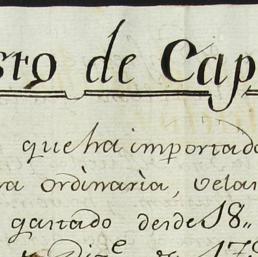 stro de Cap
que ha importado
ra ordinaria, velas
gastado desde 18,,
Diz.e de 17